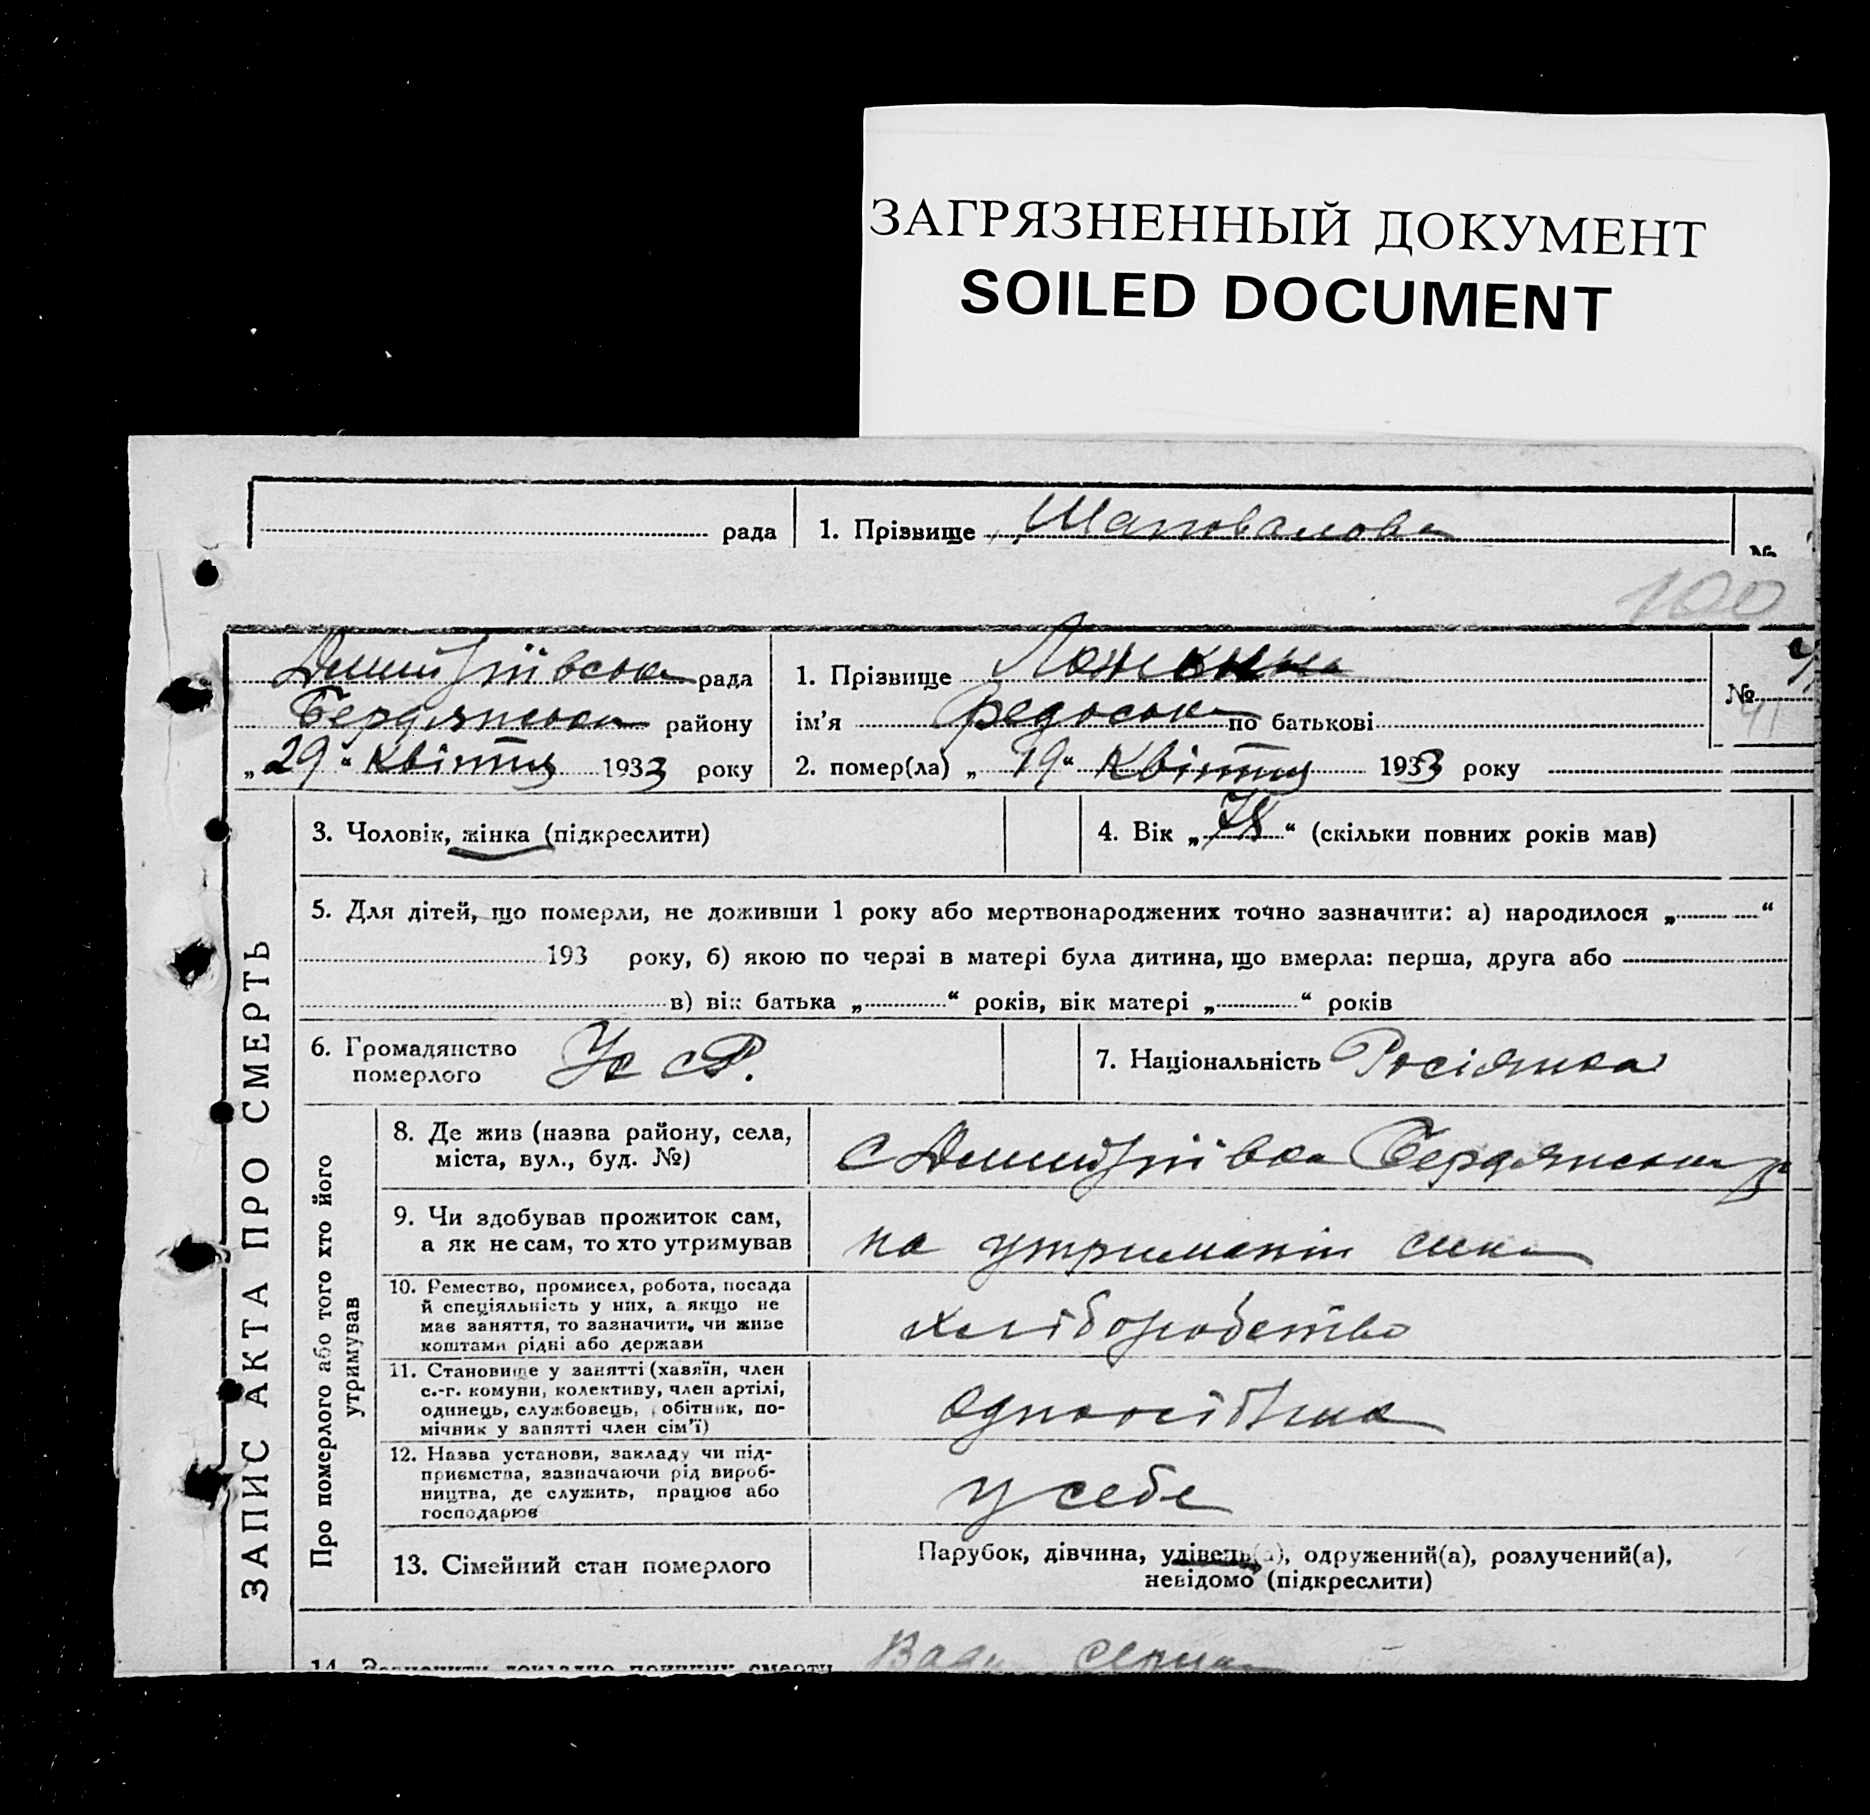 ЗАГРЯЗНЕННЫЙ ДОКУМЕНТ
SOILED DOCUMENT
рада 1. Прізвище Шаповалова
№
100
Дмитріївська рада 1. Прізвище Ложкина №
Бердянська району ім'я Федоська по батькові 41
„29“ квітня 1933 року 2. помер(ла) „19“ квітня 1933 року
ЗАПИС АКТА ПРО СМЕРТЬ
3. Чоловік, жінка (підкреслити) 4. Вік „78“ (скільки повних років мав)
5. Для дітей, що померли, не доживши 1 року або мертвонароджених точно зазначити: а) народилося „ “
193 року, б) якою по черзі в матері була дитина, що вмерла: перша, друга або
в) вік батька „ “ років, вік матері „ “ років
6. Громадянство УССР. 7. Національність Росіянка
померлого
Про померлого або того хто його
утримував
8. Де жив (назва району, села,
міста, вул., буд. №) с Дмитріівка Бердянська р
9. Чи здобував прожиток сам,
а як не сам, то хто утримував на утриманіи сина
10. Ремество, промисел, робота, посада
й спеціяльність у них, а якщо не
має заняття, то зазначити, чи живе
коштами рідні або держави хліборобство
11. Становище у занятті (хазяїн, член
с.-г. комуни, колективу, член артілі,
одинець, службовець, робітник, по-
мічник у занятті член сім'ї) одноосібник
12. Назва установи, закладу чи під-
приємства, зазначаючи рід вироб-
ництва, де служить, працює або
господарює у себе
13. Сімейний стан померлого Парубок, дівчина, удівець(а), одружений(а), розлучений(а),
невідомо (підкреслити)
14. Зазначити докладно причину смерти